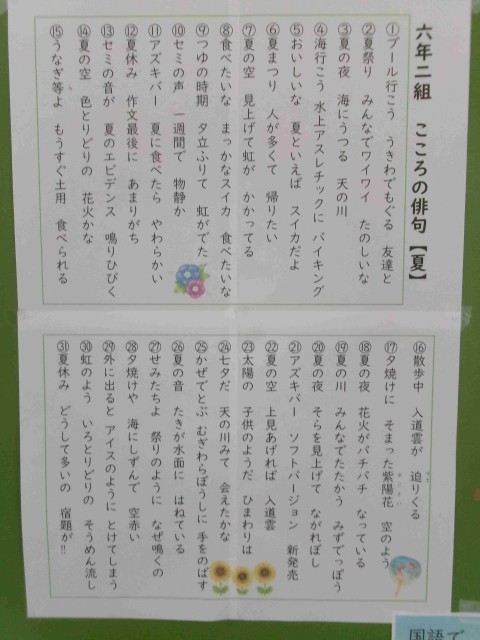 六年二組 こころの俳句【夏】
①プール行こう うきわでもぐる 友達と
②夏祭り みんなでワイワイ たのしいな
③夏の夜 海にうつる 天の川
④海行こう 水上アスレチックに バイキング
⑤おいしいな 夏といえば スイカだよ
⑥夏まつり 人が多くて 帰りたい
⑦夏の空 見上げて虹が かかってる
⑧食べたいな まっかなスイカ 食べたいな
⑨つゆの時期 夕立ふりて 虹がでた
⑩セミの声 一週間で 物静か
⑪アズキバー 夏に食べたら やわらかい
⑫夏休み 作文最後に あまりがち
⑬セミの音が 夏のエビデンス 鳴りひびく
⑭夏の空 色とりどりの 花火かな
⑮うなぎ等よ もうすぐ土用 食べられる
⑯散歩中 入道雲が 迫りくる
⑰夕焼けに そまった紫陽花 空のよう
⑱夏の夜 花火がパチパチ なっている
⑲夏の川 みんなでたたかう みずでっぽう
⑳夏の夜 そらを見上げて ながれぼし
㉑アズキバー ソフトバージョン 新発売
㉒夏の空 上見あげれば 入道雲
㉓太陽の 子供のようだ ひまわりは
㉔七夕だ 天の川みて 会えたかな
㉕かぜでとぶ むぎわらぼうしに 手をのばす
㉖夏の音 たきが水面に はねている
㉗せみたちよ 祭りのように なぜ鳴くの
㉘夕焼けや 海にしずんで 空赤い
㉙外に出ると アイスのように とけてしまう
㉚虹のよう いろとりどりの そうめん流し
㉛夏休み どうして多いの 宿題が!!
国語で